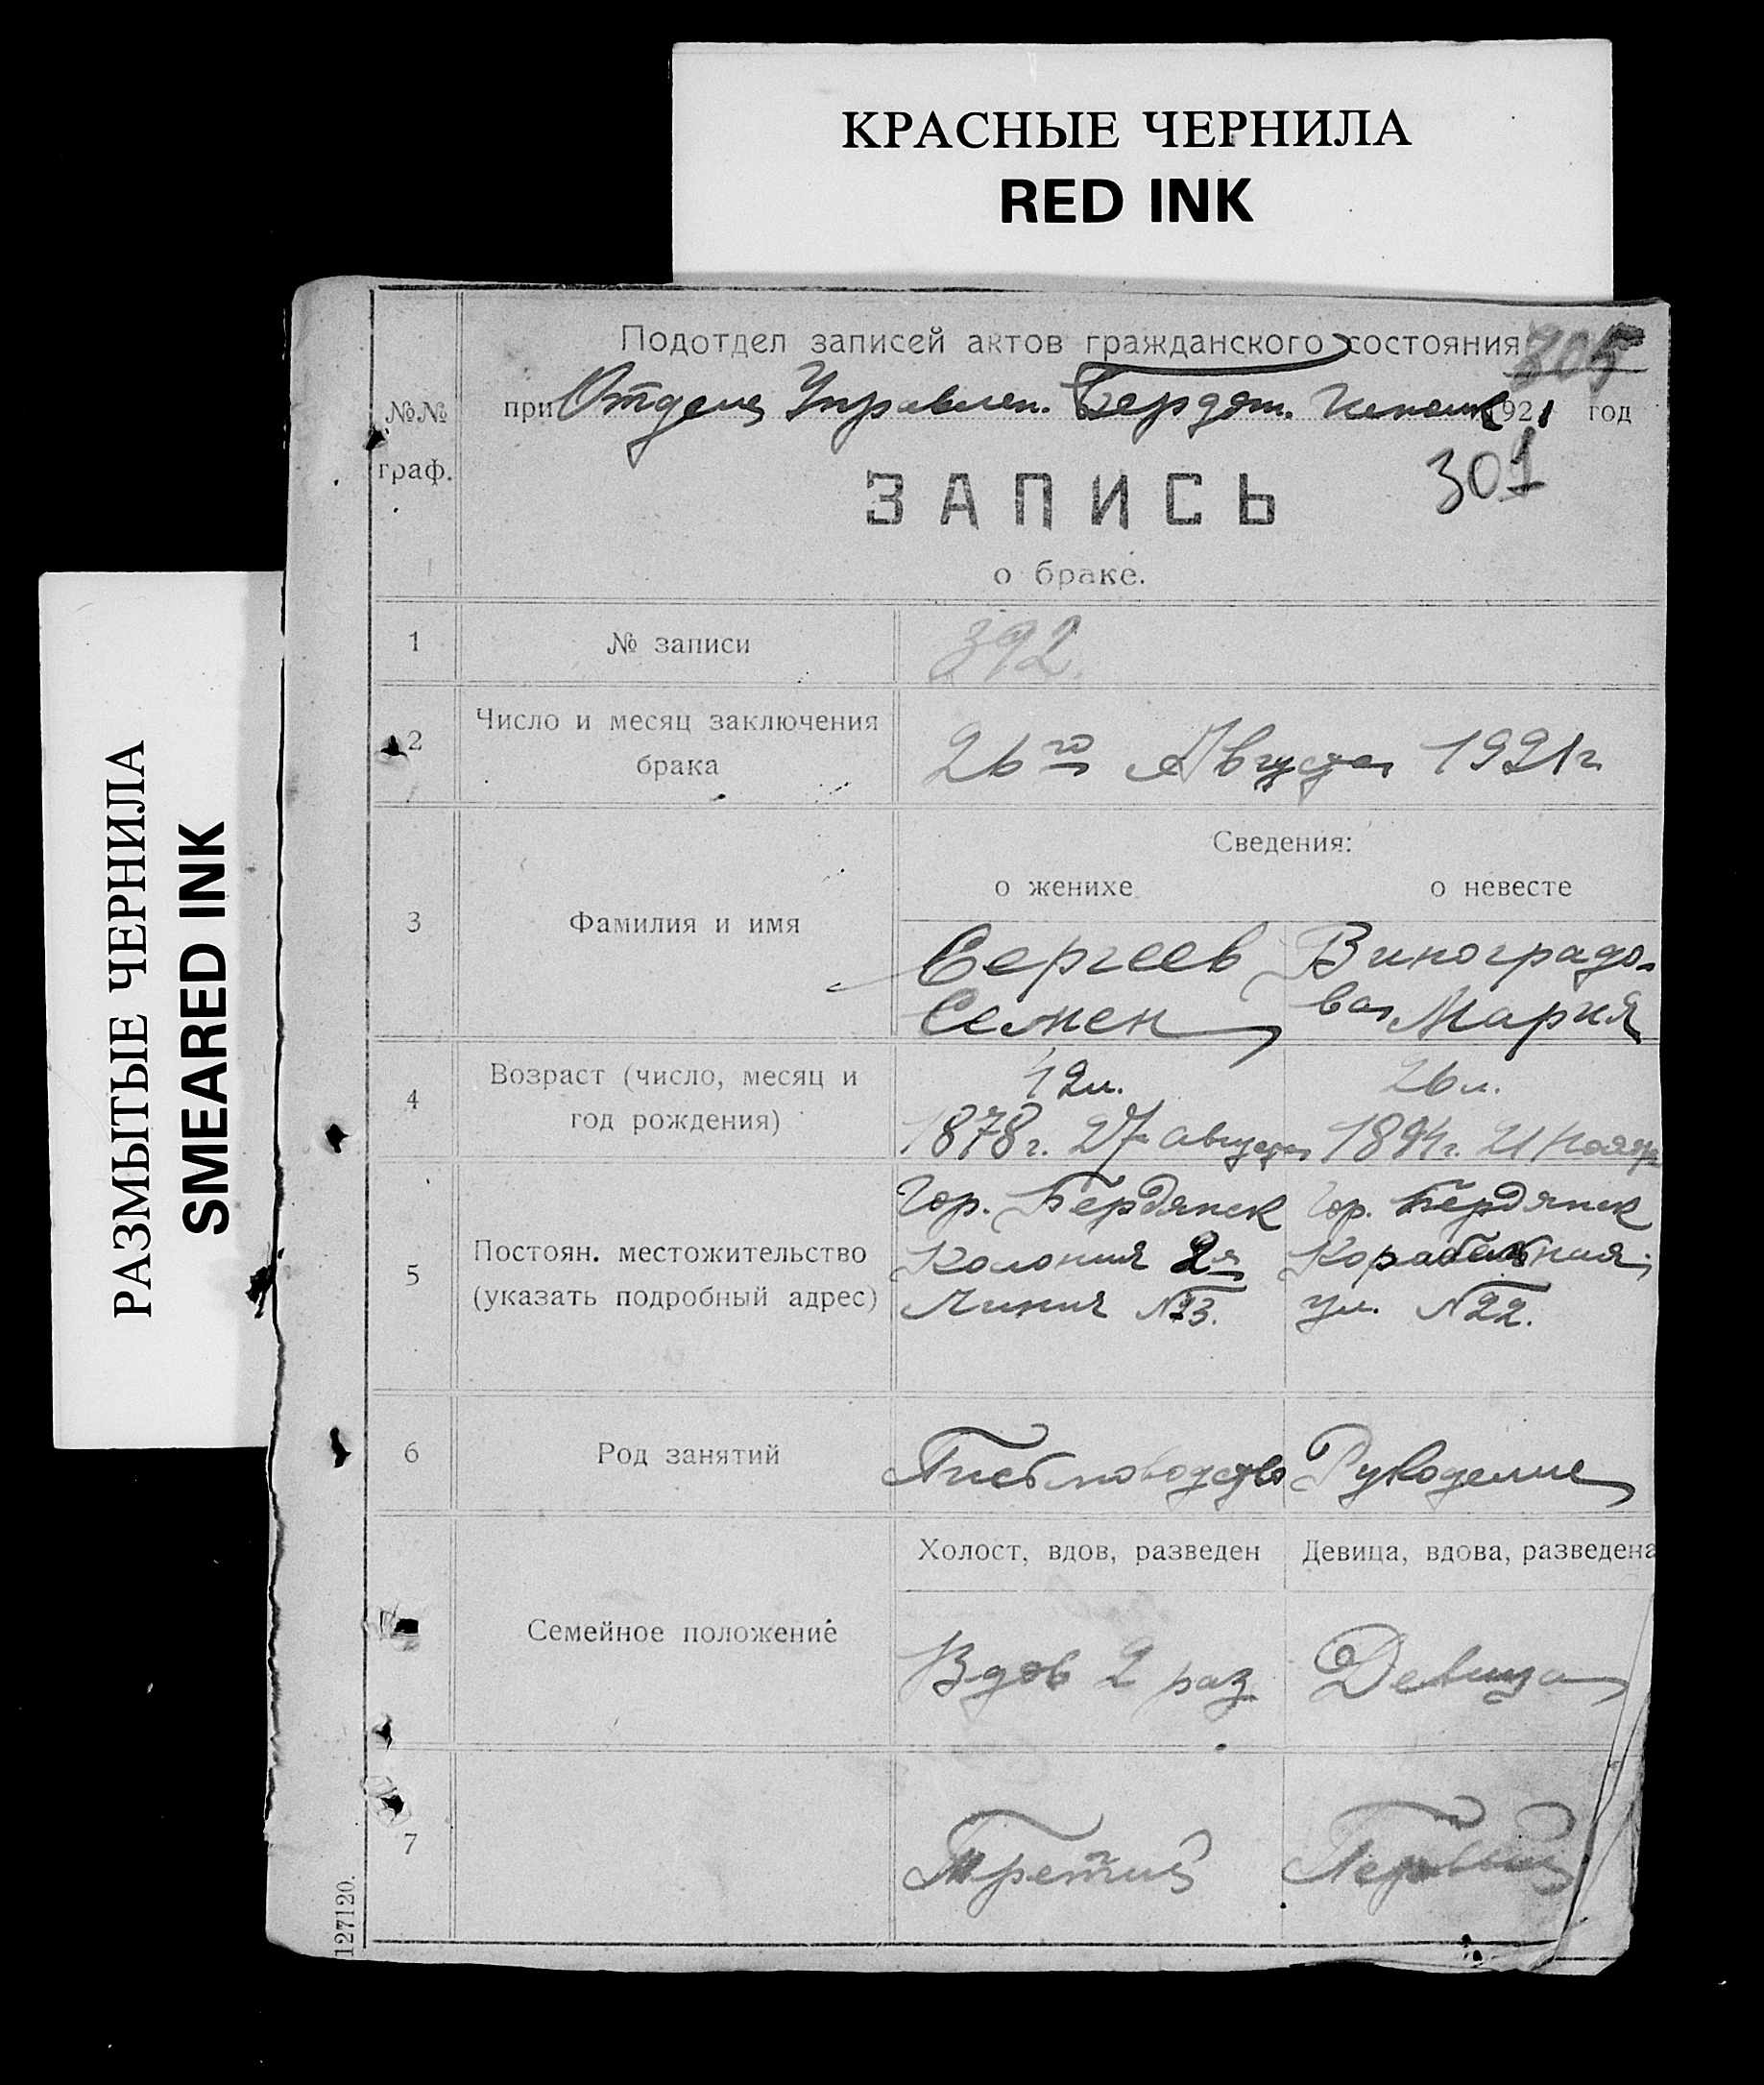 КРАСНЫЕ ЧЕРНИЛА
RED INK
РАЗМЫТЫЕ ЧЕРНИЛА
SMEARED INK
Подотдел записей актов гражданского состояния 305
№№ граф.
при Отделе Управлен. Бердян. 1921 год
301
ЗАПИСЬ
о браке.
1 № записи 392
2 Число и месяц заключения брака
26го Августа 1921г
Сведения:
о женихе о невесте
3 Фамилия и имя
Сергеев Виноградо-
Семен ва Мария
4 Возраст (число, месяц и год рождения)
42л. 26л.
1878г. 27 августа 1894г. 21 Ноябр
5 Постоян. местожительство (указать подробный адрес)
Гор. Бердянск Гор. Бердянск
Колония 2я Корабельная
Линия №23. ул. №22.
6 Род занятий
Рукоделие
Холост, вдов, разведен Девица, вдова, разведена
Семейное положение
Вдов 2 раз Девица
7 Третий Первый
127120.